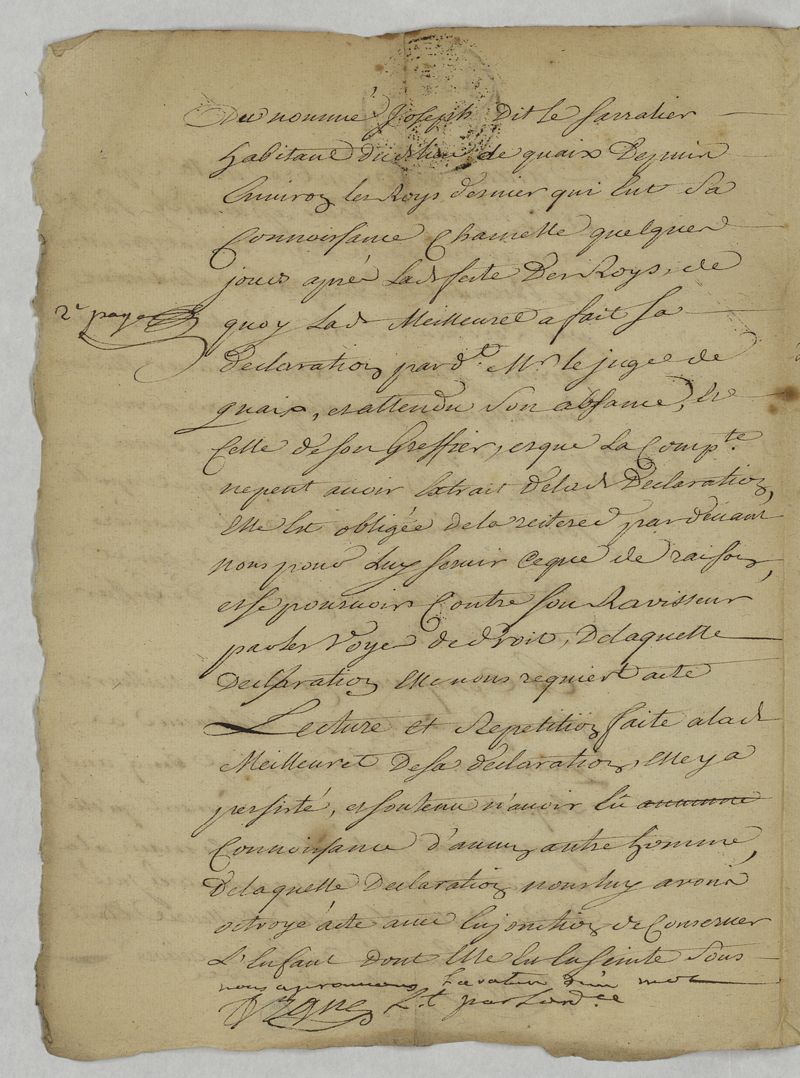 Du nommé Joseph Dit le sarralier
habitant dud. lieu de quaix Depuis
Environ les Roys dernier qui Eut Sa
Connoissance Charnelle quelques
jours aprés Lad. feste Des Roys, de
2e page
quoy Lad. Meilleuret a fait Sa
declaration pard.t Mr. le juge de
quaix, et attendu Son absance, Et
Celle de son Greffier, et que La Comp.te
ne peut avoir Extrait de lad. Declaration,
Elle Est obligée de la reiterer pardevant
nous pour Luy servir ce que de raison,
et se pourvoir Contre son Ravisseur
par les Voye de droit, De laquelle
Declaration Elle nous requiert acte
Lecture et Repetition faite a lad.
Meilleuret De sa declaration, Elle y a
persisté, et soutenu n'avoir Eû aucune
Connoissance d'aucun autre homme,
De laquelle Declaration nous luy avons
octroyé acte avec Injonction de Conserver
L'Enfant dont Elle Est Enseinte Sous
nous aprouvons La ration d'un mot